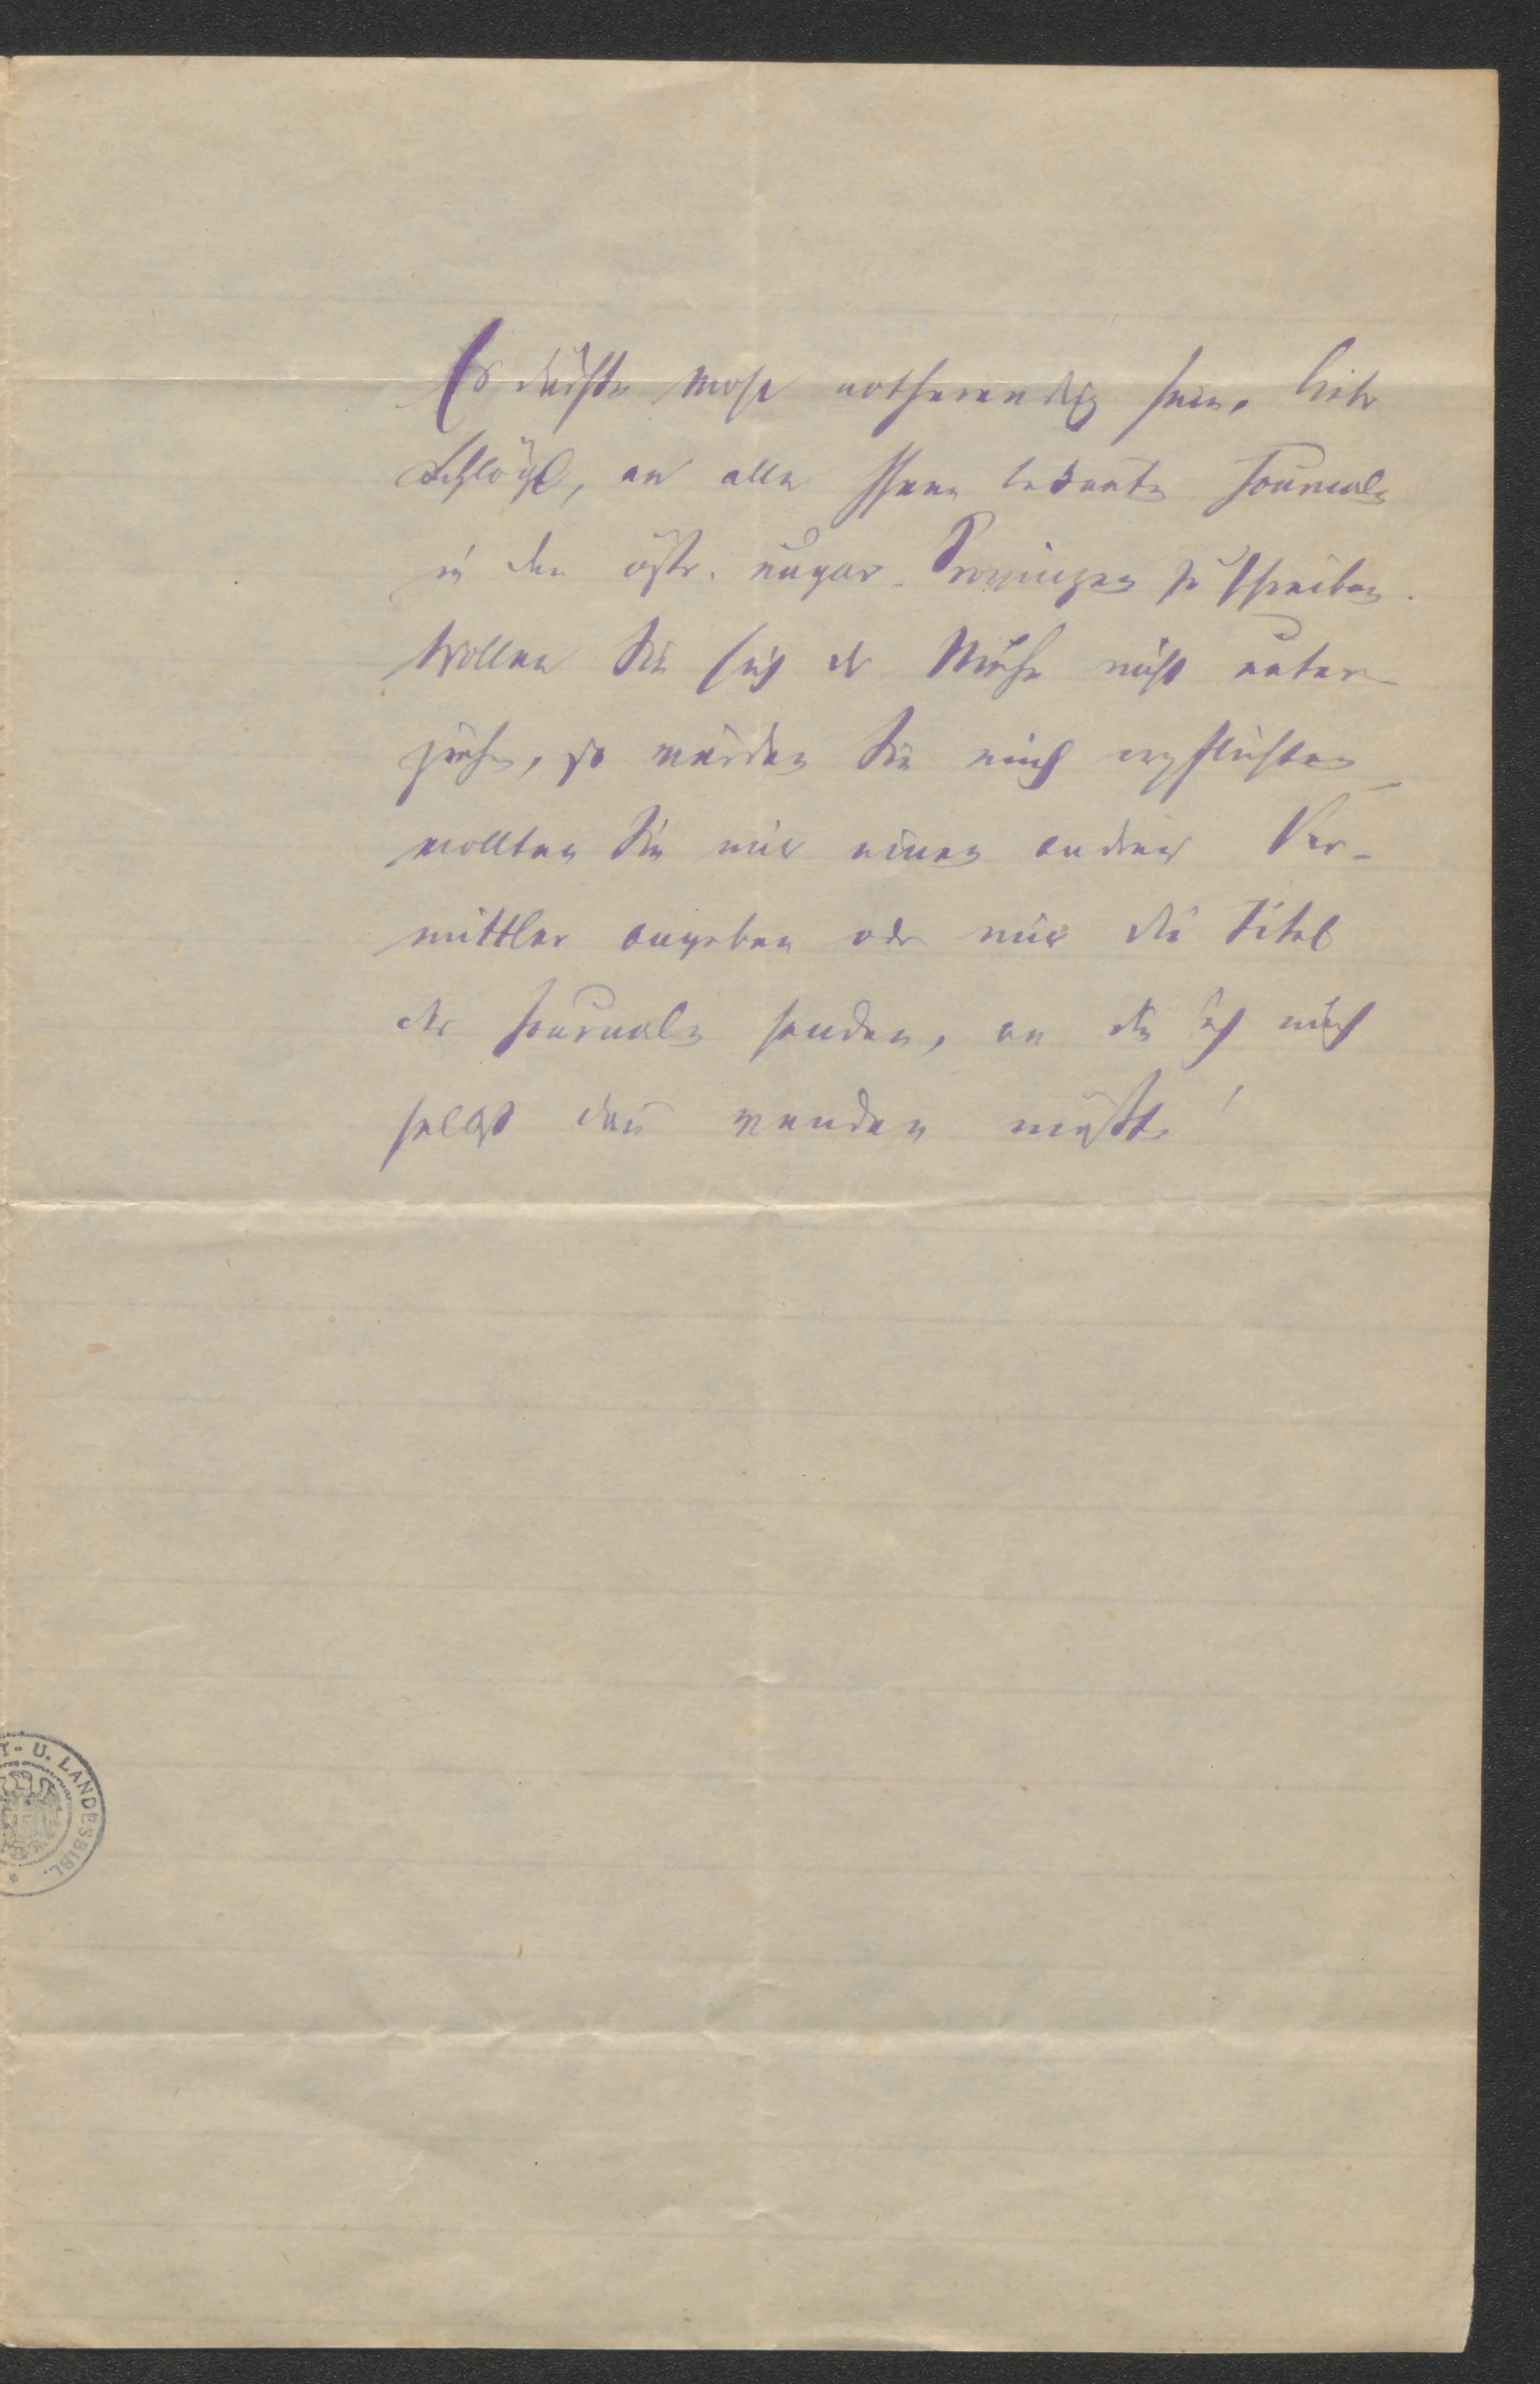 Es dürfte wohl nothwendig sein, lieber
Schlögl, an alle Ihnen bekannte Journale
in den östr. ungar. Provinzen zu schreiben.
Wollen Sie sich der Mühe nicht unter-
ziehen, so würden Sie mich verpflichten
wollten Sie mir einen andern Ver-
mittler angeben oder mir die Titel
der Journale senden, an die ich mich
selbst dann wenden müßte!
U. LANDESBIBL.